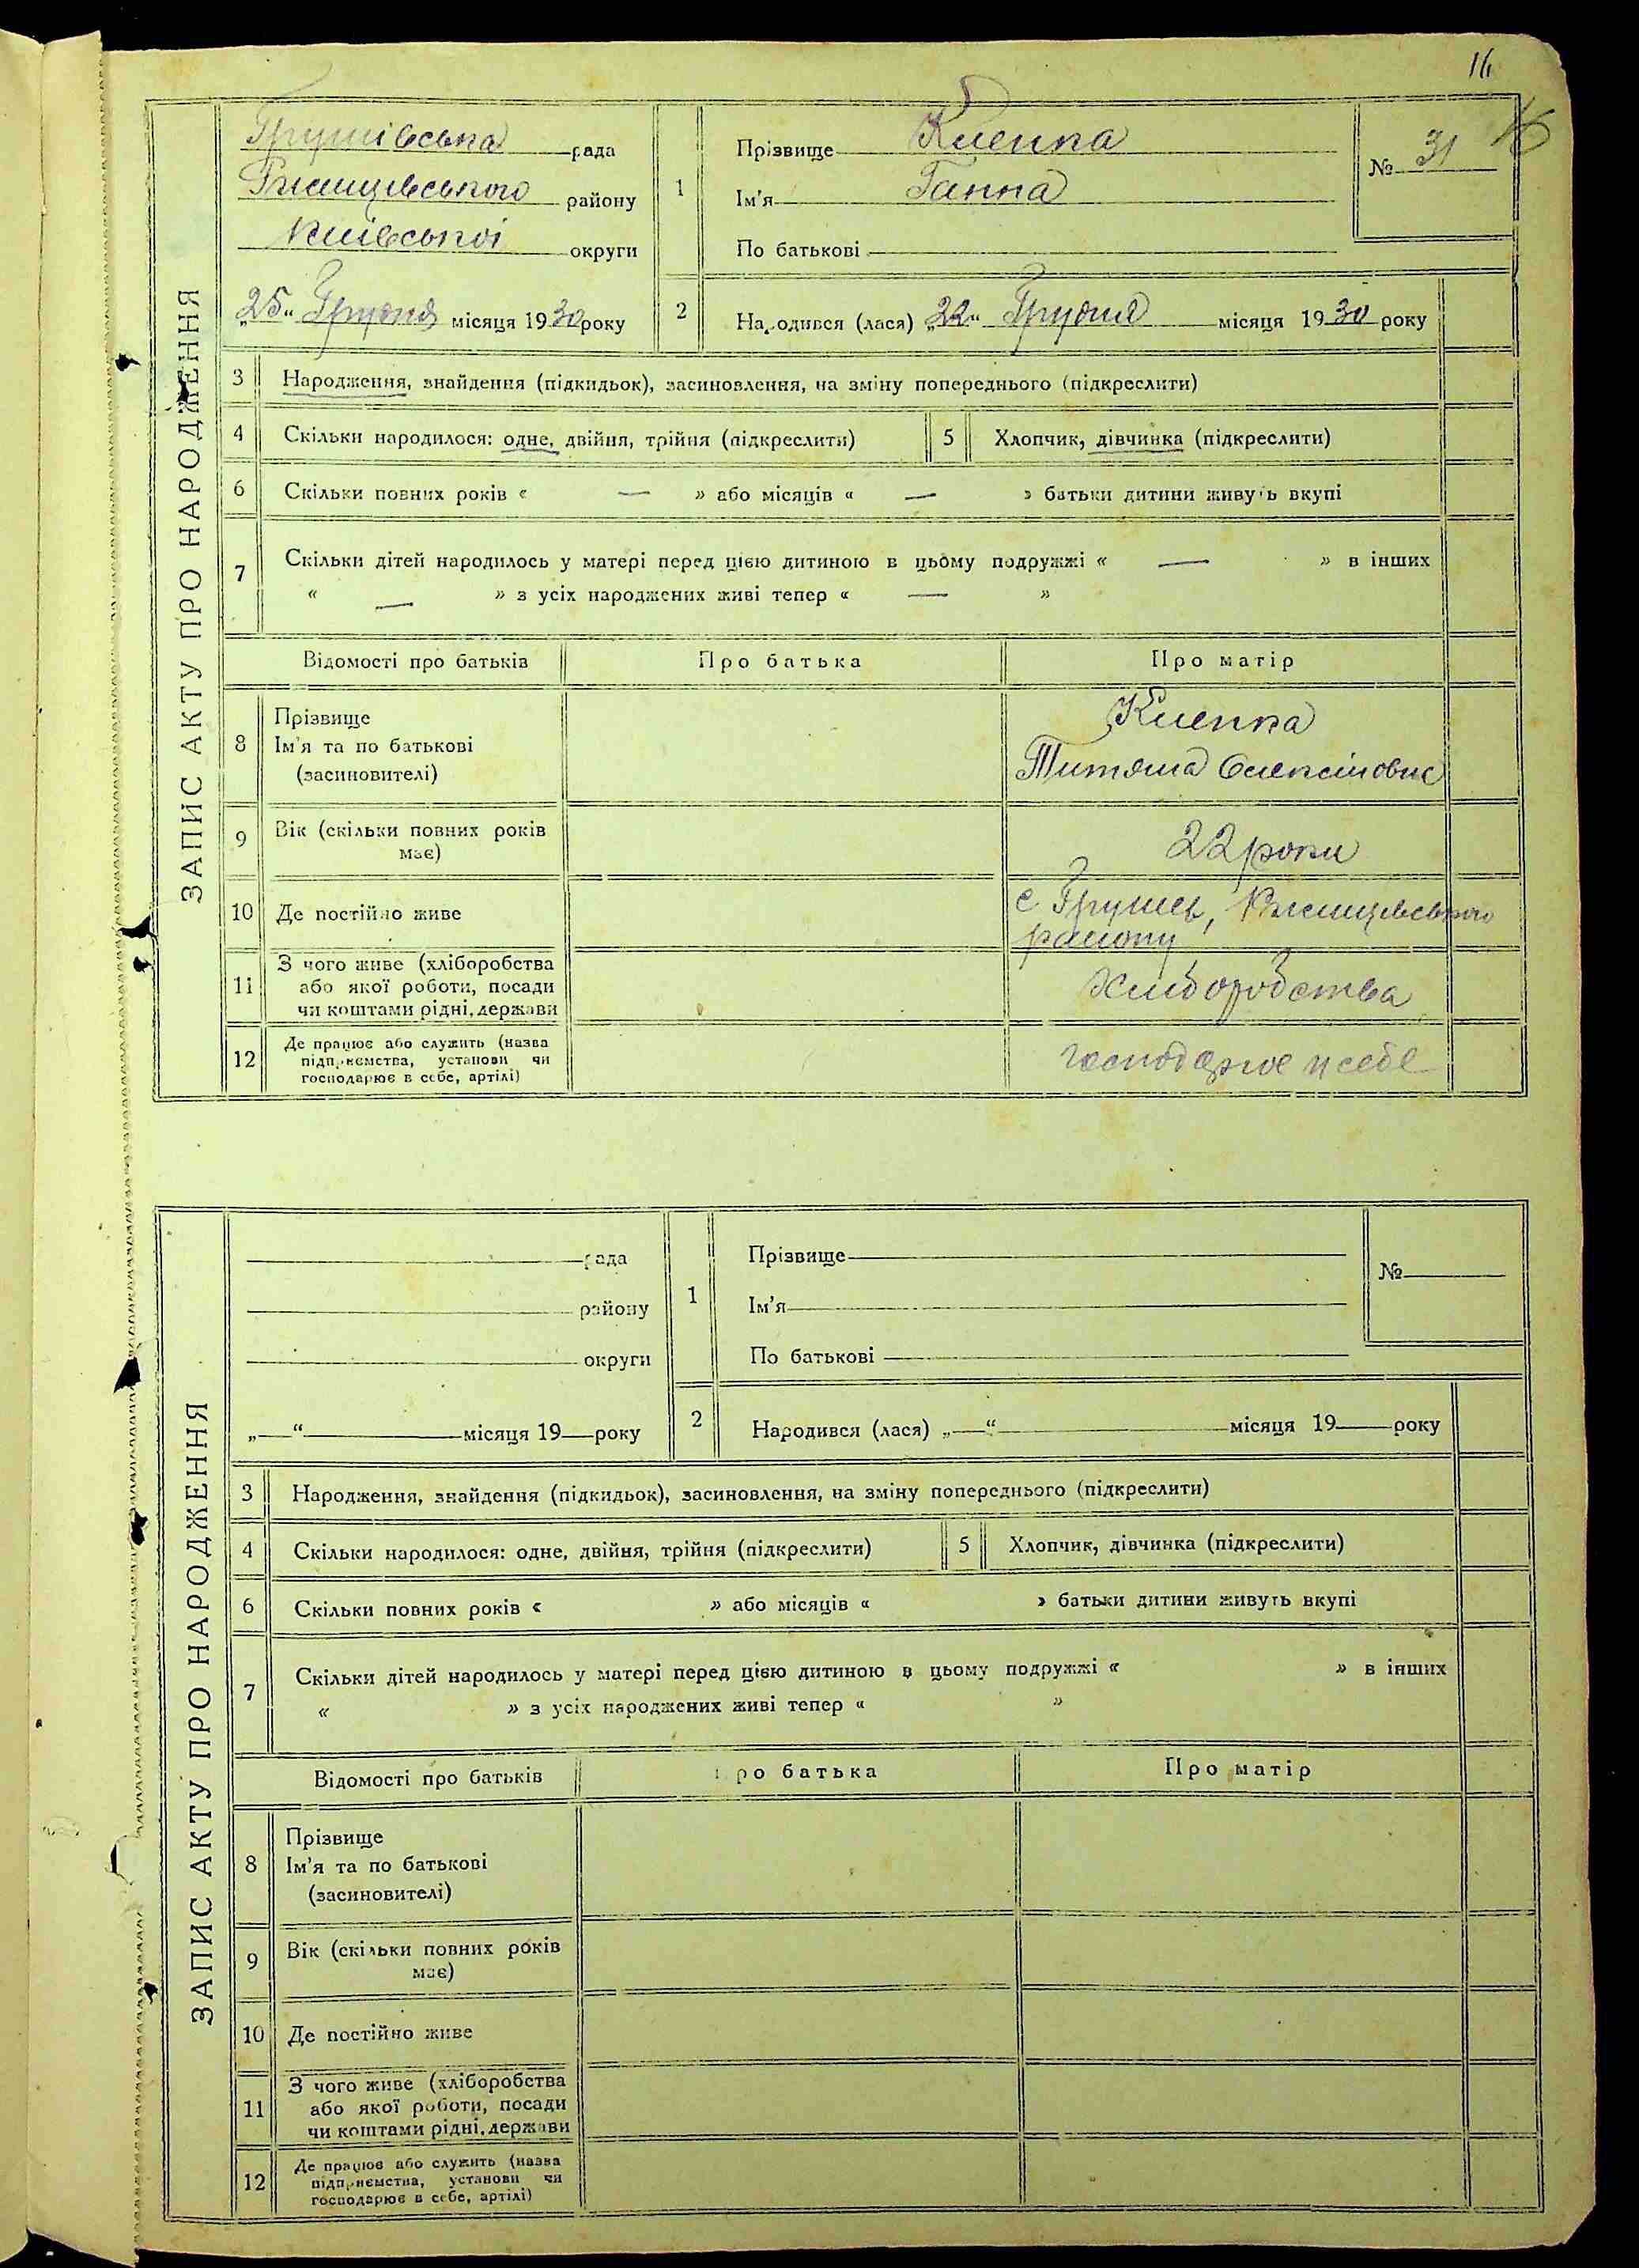 16
16
ЗАПИС АКТУ ПРО НАРОДЖЕННЯ
Грушівська рада
Ржищівського району
Київської округи
„25“ Грудня місяця 1930 року
1
Прізвище Клепка
Ім'я Ганна
По батькові
№ 31
2
Народився (лася) „22“ Грудня місяця 1930 року
3 Народження, знайдення (підкидьок), засиновлення, на зміну попереднього (підкреслити)
4 Скільки народилося: одне, двійня, трійня (підкреслити) 5 Хлопчик, дівчинка (підкреслити)
6 Скільки повних років « — » або місяців « — » батьки дитини живуть вкупі
7 Скільки дітей народилось у матері перед цією дитиною в цьому подружжі « — » в інших
« — » з усіх народжених живі тепер « — »
Відомості про батьків Про батька Про матір
8 Прізвище
Ім'я та по батькові
(засиновителі)
Клепка
Титяна Олексіївна
9 Вік (скільки повних років
має)
22 роки
10 Де постійно живе
с Грушев, Ржищівського
району
11 З чого живе (хліборобства
або якої роботи, посади
чи коштами рідні, держави
Хліборобства
12 Де працює або служить (назва
підприємства, установи чи
господарює в себе, артілі)
господарює у себе
ЗАПИС АКТУ ПРО НАРОДЖЕННЯ
рада
району
округи
„ “ місяця 19 року
1
Прізвище
Ім'я
По батькові
№
2
Народився (лася) „ “ місяця 19 року
3 Народження, знайдення (підкидьок), засиновлення, на зміну попереднього (підкреслити)
4 Скільки народилося: одне, двійня, трійня (підкреслити) 5 Хлопчик, дівчинка (підкреслити)
6 Скільки повних років « » або місяців « » батьки дитини живуть вкупі
7 Скільки дітей народилось у матері перед цією дитиною в цьому подружжі « » в інших
« » з усіх народжених живі тепер « »
Відомості про батьків Про батька Про матір
8 Прізвище
Ім'я та по батькові
(засиновителі)
9 Вік (скільки повних років
має)
10 Де постійно живе
11 З чого живе (хліборобства
або якої роботи, посади
чи коштами рідні, держави
12 Де працює або служить (назва
підприємства, установи чи
господарює в себе, артілі)